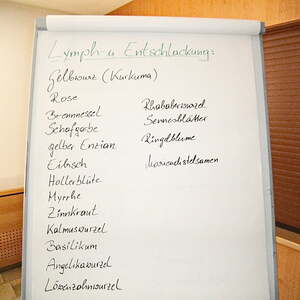 Lymph- u Entschlackung:
Gelbwurz (Kurkuma)
Rose
Brennessel
Schafgarbe
gelber Enzian
Eibisch
Hollerblüte
Myrrhe
Zinnkraut
Kalmuswurzel
Basilikum
Angelikawurzel
Löwenzahnwurzel
Rhabarberwurzel
Sennesblätter
Ringelblume
Mariendistelsamen